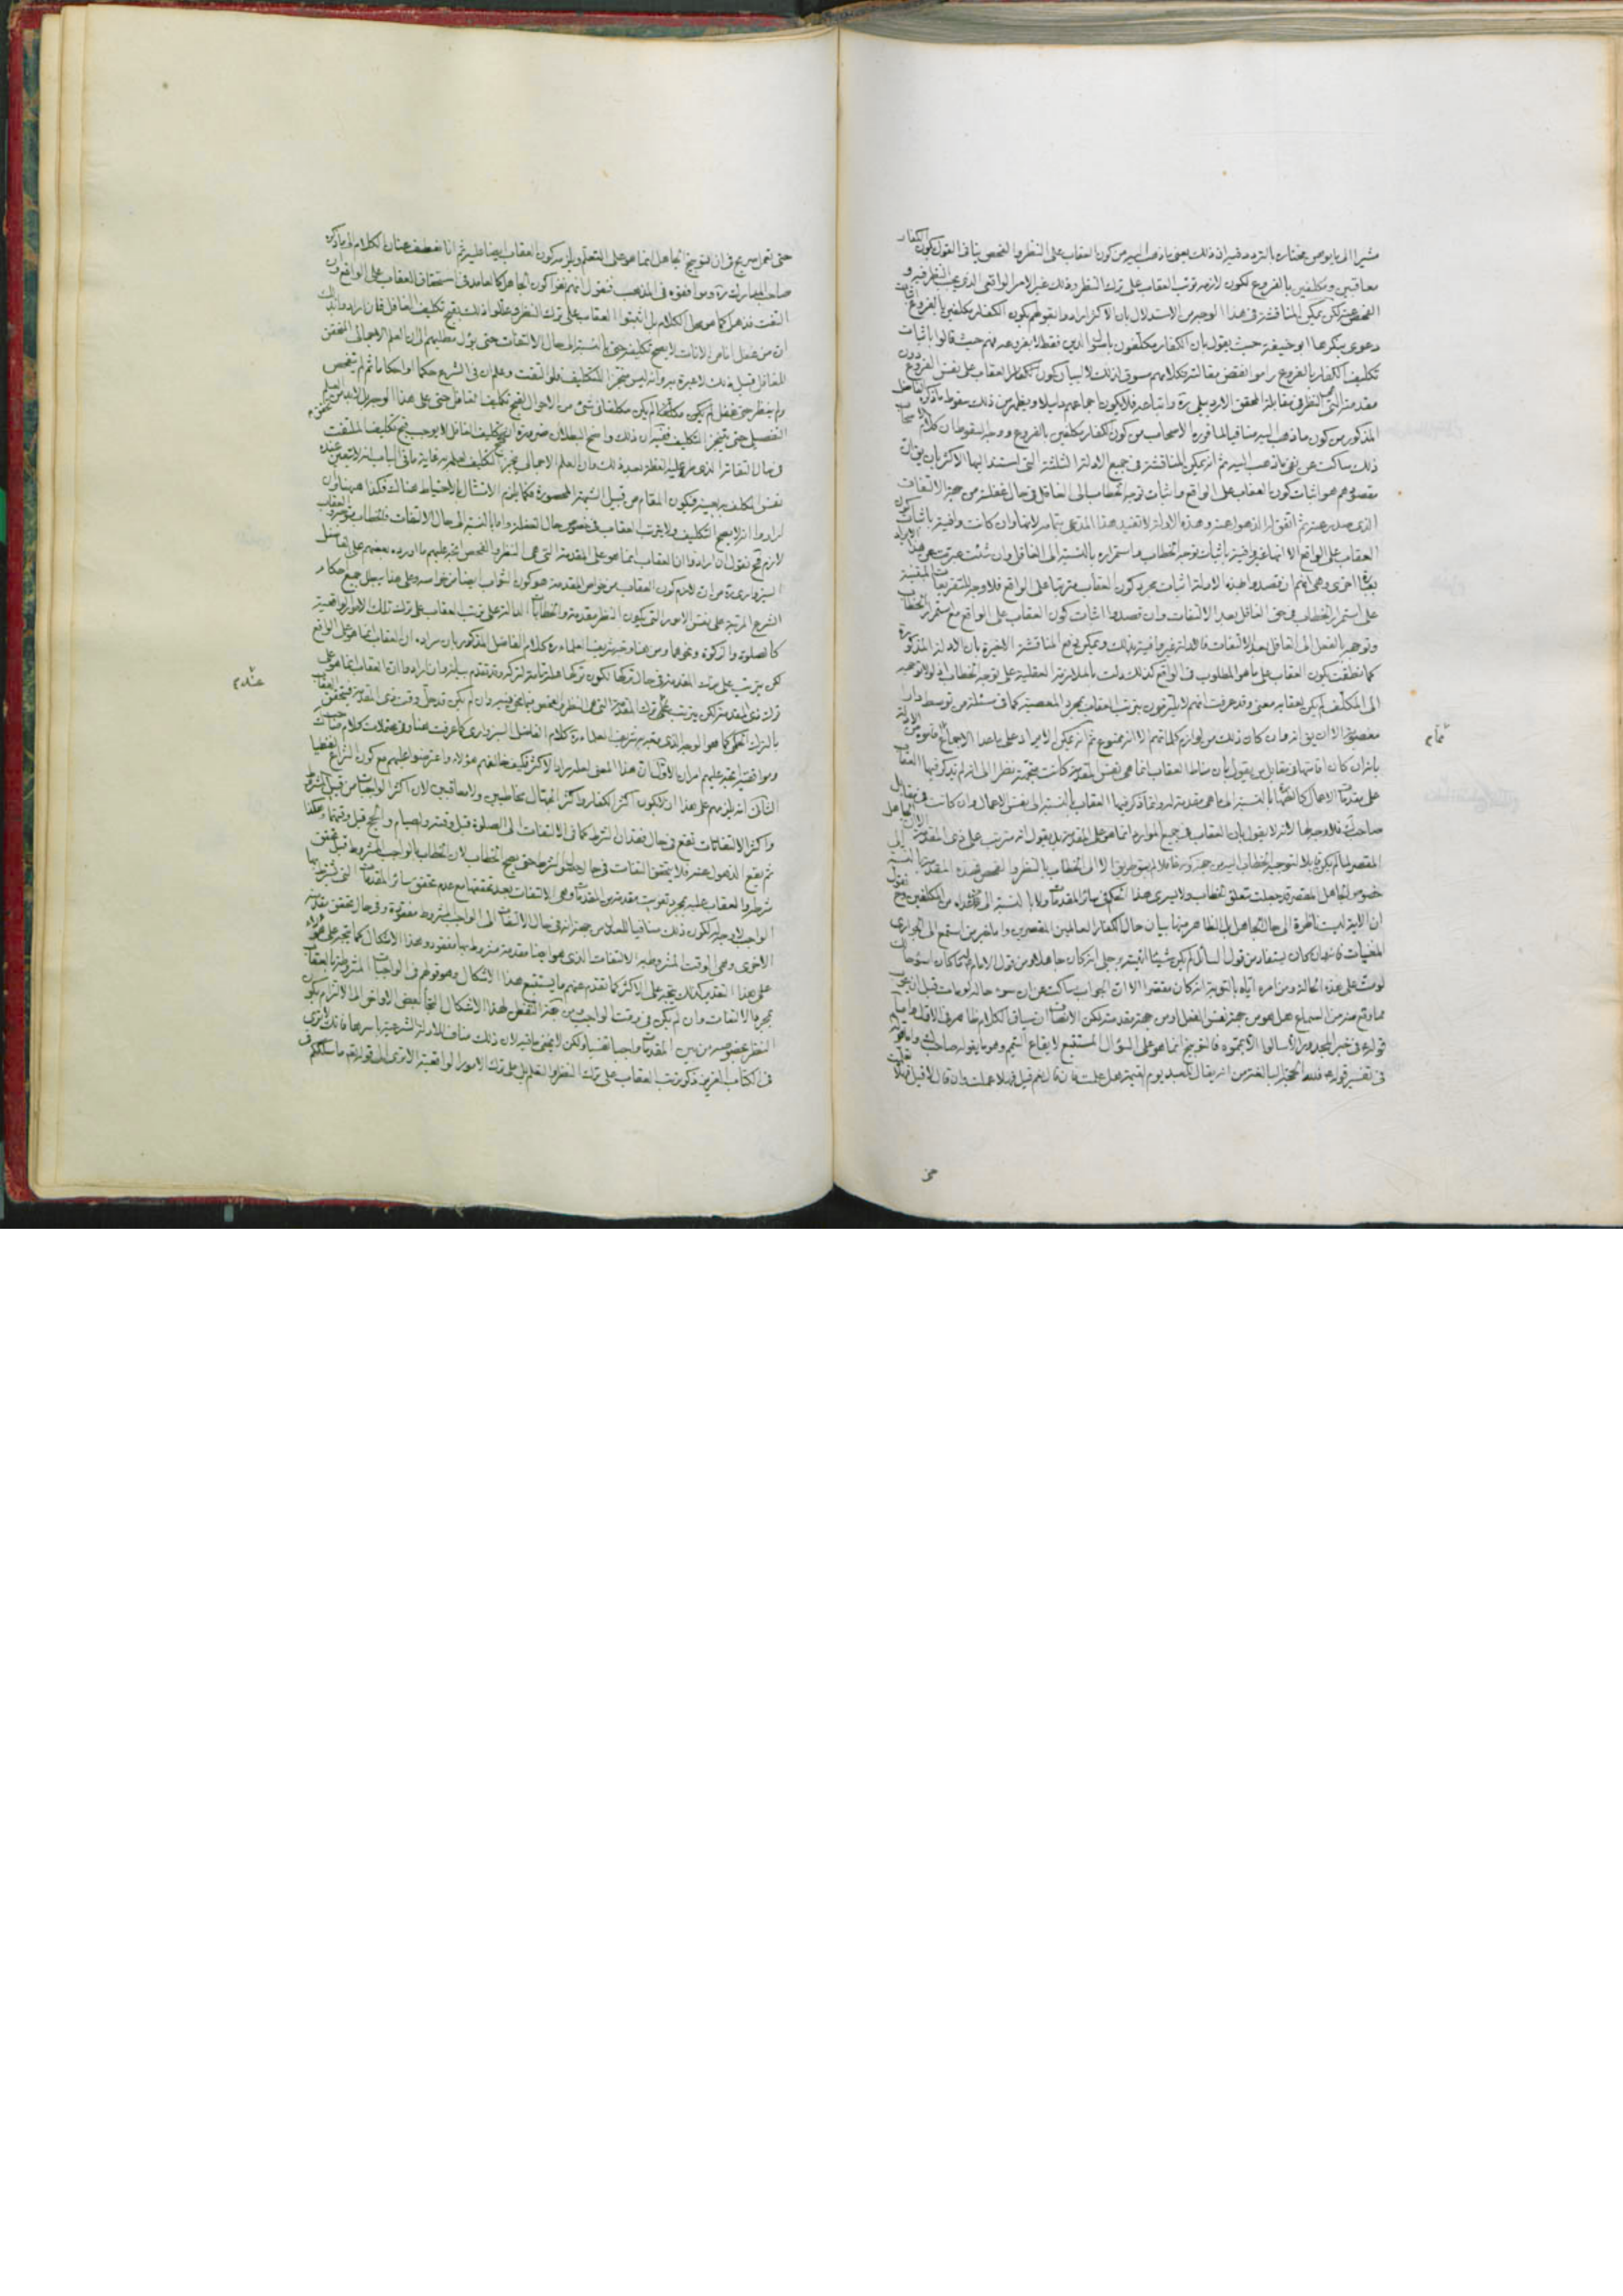 مشيرا الى ما يوصى بختاره بالترديد فيه ان ذلك يعنى ما ذهب اليه من كون العقاب على النظر والفحص ينافى القول بكون الكفار
معاقبين ومكلفين بالفروع لكون لازمه ترتب العقاب على ترك النظر وذلك غير الامر الواقعى الذى يجب النظر فيه و
الفحص عنه لكن يمكن المناقشة فى هذا الوجه من الاستدلال بان الاكثر ارادوا بقولهم بكون الكفار مكلفين بالفروع
دعوى ينكرها ابو حنيفة حيث يقول بان الكفار مكلفون باصول الدين فقط لا بفروعه فهم حيث قالوا باثبات
تكليف الكفار بالفروع راموا نقض مقالته فكلامهم مسوق لذلك لا لبيان كون الكفار العقاب على نفس الفروع دون
مقدمته التى هى النظر فى مقابلة المحقق الاردبيلى ره واتباعه فلا يكون اجماعهم دليلا ويعلم من ذلك سقوط ما ذكره الفاضل
المذكور من كون ما ذهب اليه منافيا لما قرره الاصحاب من كون الكفار مكلفين بالفروع ووجه السقوط ان كلام الاصحاب
ذلك ساكت عن نفى ما ذهب اليه ثم انه يمكن المناقشة فى جميع الادلة الثلثة التى استند اليها الاكثر بان يق ان
مقصودهم هو اثبات كون العقاب على الواقع واثبات توجه الخطاب الى الغافل فى حال غفلته من حيث الالتفات
الذى حصل عنه ثم اتفق له الذهول عنه وهذه الادلة لا تفيد هذا المدعى بتمامه لانها وان كانت وافية باثبات كون
العقاب على الواقع الا انها غير وافية باثبات توجه الخطاب واستمراره بالنسبة الى الغافل وان شئت عبرت عن هذا الايراد
بعبارة اخرى وهى انهم ان قصدوا بهذه الادلة اثبات مجرد كون العقاب مترتبا على الواقع فلا وجه للتفريعات المبتنية
على استمرار الخطاب فى حق الغافل بعد الالتفات وان قصدوا اثبات كون العقاب على الواقع مع استمرار الخطاب
وتوجهه بالفعل الى الغافل بعد الالتفات فالادلة غير وافية بذلك ويمكن دفع المناقشة الاخيرة بان الادلة المذكورة
كما نطقت بكون العقاب على ما هو المطلوب فى الواقع كذلك دلت بالملازمة العقلية على توجه الخطاب اذ لولا توجهه
الى المكلف لم يكن لعقابه معنى وقد عرفت انهم لا يلتزمون بترتب العقاب بمجرد المعصية كما فى مسئلة من توسط دارا
مغصوبة الا ان يق انه وان كان ذلك من لوازم كلماتهم الا انه ممنوع ثم انه يمكن الايراد على ما عدا الاجماع من الادلة
تمام
بانه ان كان اقامتها فى مقابل من يقول بان مناط العقاب انما هى نفس المقدمة كانت متجهة نظرا الى انه لم يذكر فيها العقاب
على مقدمات الاعمال كالصلوة بالنسبة الى ما هى مقدمة له وانما ذكر فيها العقاب بالنسبة الى نفس الاعمال وان كانت فى مقابل
صاحب ره فلا وجه لها لانه لا يقول بان العقاب فى جميع الموارد انما هو على المقدمة بل يقول انه مترتب على ذى المقدمة الا ان الجاهل
المقصر لما لم يكن قابلا لتوجيه الخطاب اليه من جهة كونه غافلا لم يبق طريق الا الى الخطاب بالنظر والفحص فهذه المقدمة بالنسبة الى
خصوص الجاهل المقصر قد جعلت متعلق الخطاب ولا يسرى هذا الحكم فى سائر المقدمات ولا بالنسبة الى ما عداه من المكلفين وح نقول
ان الاية ليست ناظرة الى حال الجاهل بل الظاهر منها بيان حال الكفار العالمين المقصرين واما خبر من استمع الى الجوارى
المغنيات فانه وان كان يستفاد من قول السائل لم يكن شيئا اتيته برجلى انه كان جاهلا ومن قول الامام له ما كان اسوء حالك
لو مت على هذه الحالة ومن امره اياه بالتوبة انه كان مقصرا الا ان الجواب ساكت عن ان سوء حاله لو مات قبل ان يتوب
مما وقع منه من السماع هل هو من جهة نفس الفعل او من جهة مقدمته لكن الانصاف ان سياق الكلام ظاهر فى الاول واما
قوله ع فى خبر المجدور الا سالوا الا يمموه فالتوبيخ انما هو على السؤال المستتبع لايقاع التيمم وهو ما يقوله صاحب ك واما
فى تفسير قوله تعالى فلله الحجة البالغة من انه يقال للعبد يوم القيمة هل علمت فان قال نعم قيل فهلا عملت وان قال لا قيل فهلا تعلمت
حتى
حتى تعمل صريح فى ان توبيخ الجاهل انما هو على التعلم ويلزمه كون العقاب ايضا عليه ثم انا نعطف عنان الكلام الى ما ذكره
صاحب المدارك ره وموافقوه فى المذهب فنقول انهم نفوا كون الجاهل كالعامد فى استحقاق العقاب على الواقع وان
التفت فذهل كما هو محل الكلام بل اثبتوا العقاب على ترك النظر وعللوا ذلك بقبح تكليف الغافل فان ارادوا بذلك
ان من غفل انا من الانات لا يصح تكليفه حتى بالنسبة الى حال الالتفات حتى يؤل مطلبهم الى ان العلم الاجمالى المتحقق
للغافل قبل ذلك لا عبرة به وانه ليس منجزا للتكليف فلو التفت وعلم ان فى الشرع حكما او احكاما ثم لم يتفحص
ولم ينظر حتى غفل لم يكن مكلفا لم يكن مكلفا فى شئ من الاحوال لقبح تكليف الغافل حتى على هذا الوجه بل لابد من العلم
التفصيلى حتى يتنجز التكليف ففيه ان ذلك واضح البطلان ضرورة ان قبح تكليف الغافل لا يوجب قبح تكليف الملتفت
فى حال التفاته الذى طرء عليه الغفلة بعد ذلك وان العلم الاجمالى منجز للتكليف لعلمه به غاية ما فى الباب انه لا يتعين عنده
نفس المكلف به بعينه فيكون المقام من قبيل الشبهة المحصورة فكما يلزم الامتثال بالاحتياط هناك فكذا هيهنا وان
ارادوا انه لا يصح التكليف ولا يترتب العقاب فى خصوص حال الغفلة واما بالنسبة الى حال الالتفات فالخطاب متوجه والعقاب
لازم فح نقول ان ارادوا ان العقاب انما هو على المقدمة التى هى النظر والفحص اتجه عليهم ما اورده بعضهم على الفاضل
السبزوارى ره من ان لازم كون العقاب من خواص المقدمة هو كون الثواب ايضا من خواصه وعلى هذا يبطل جميع احكام
الشرع المرتبة على نفس الامور التى يكون النظر مقدمة والخطابات الدالة على ترتب العقاب على ترك تلك الامور الواقعية
كالصلوة والزكوة ونحوهما ومن هنا وجه شريف العلماء ره كلام الفاضل المذكور بان مراده ان العقاب انما هو على الواقع
لكن يترتب على ترك المقدمة فى حال تركها لكون تركها علة تامة لتركه وقد تقدم بيانه وان ارادوا ان العقاب انما هو على
ترك ذى المقدمة لكن يترتب بمجرد ترك المقدمة التى هى النظر والفحص فيما نحن فيه وان لم يكن قد حل وقت ذى المقدمة فيتحقق العقاب
بالترك الحكمى كما هو الوجه الذى به شريف العلماء ره كلام الفاضل السبزوارى كما عرفت هنا وفى محتملات كلام صاحب ك
وموافقيه اتجه عليهم امران الاول ان هذا المعنى لعله مراد الاكثر فكيف خالفهم هؤلاء واعترضوا عليهم مع كون النزاع لفظيا
الثانى انه يلزمهم على هذا ان لا يكون اكثر الكفار واكثر الجهال مخاطبين ولا معاقبين لان اكثر الواجبات من قبيل المشروط
واكثر الالتفاتات تقع فى حال فقدان الشرط كما فى الالتفات الى الصلوة قبل وقتها والصيام والحج قبل وقتهما وهكذا
ثم يقع الذهول عنه فلا يتحقق التفات فى حال حصول الشرط حتى يصح الخطاب لان الخطاب بالواجب المشروط قبل تحقق
شرطه والعقاب عليه بمجرد تفويت مقدمة من المقدمات وهى الالتفات بعد تحققها مع عدم تحقق سائر المقدمات التى يشترط بها
الواجب لا وجه له لكون ذلك منافيا للعدل من جهة انه فى حال الالتفات الى الواجب شروط مفقودة وفى حال تحقق مقدمته
الاخرى وهى الوقت المشروط به الالتفات الذى هو ايضا مقدمة مشروط بها مفقود وهذا الاشكال كما يتجه على هؤلاء
على هذا التقدير كذلك يتجه على الاكثر كما تقدم عنهم ما يستتبع هذا الاشكال وهو قولهم فى الواجبات المشروطة بالعقاب
بمجرد الالتفات وان لم يكن فى وقت الواجب ومن جهة التفطن لهذا الاشكال التجأ بعض الاواخر الى الالتزام بكون
النظر بخصوصه من بين المقدمات واجبا نفسيا ولكن لا يخفى ما فيه لان ذلك مناف للادلة الشرعية باسرها فانك لا ترى
فى الكتاب العزيز ذكر ترتب العقاب على ترك النظر والتعلم بل على ترك الامور الواقعية الا ترى الى قوله تعالى ما سلككم فى